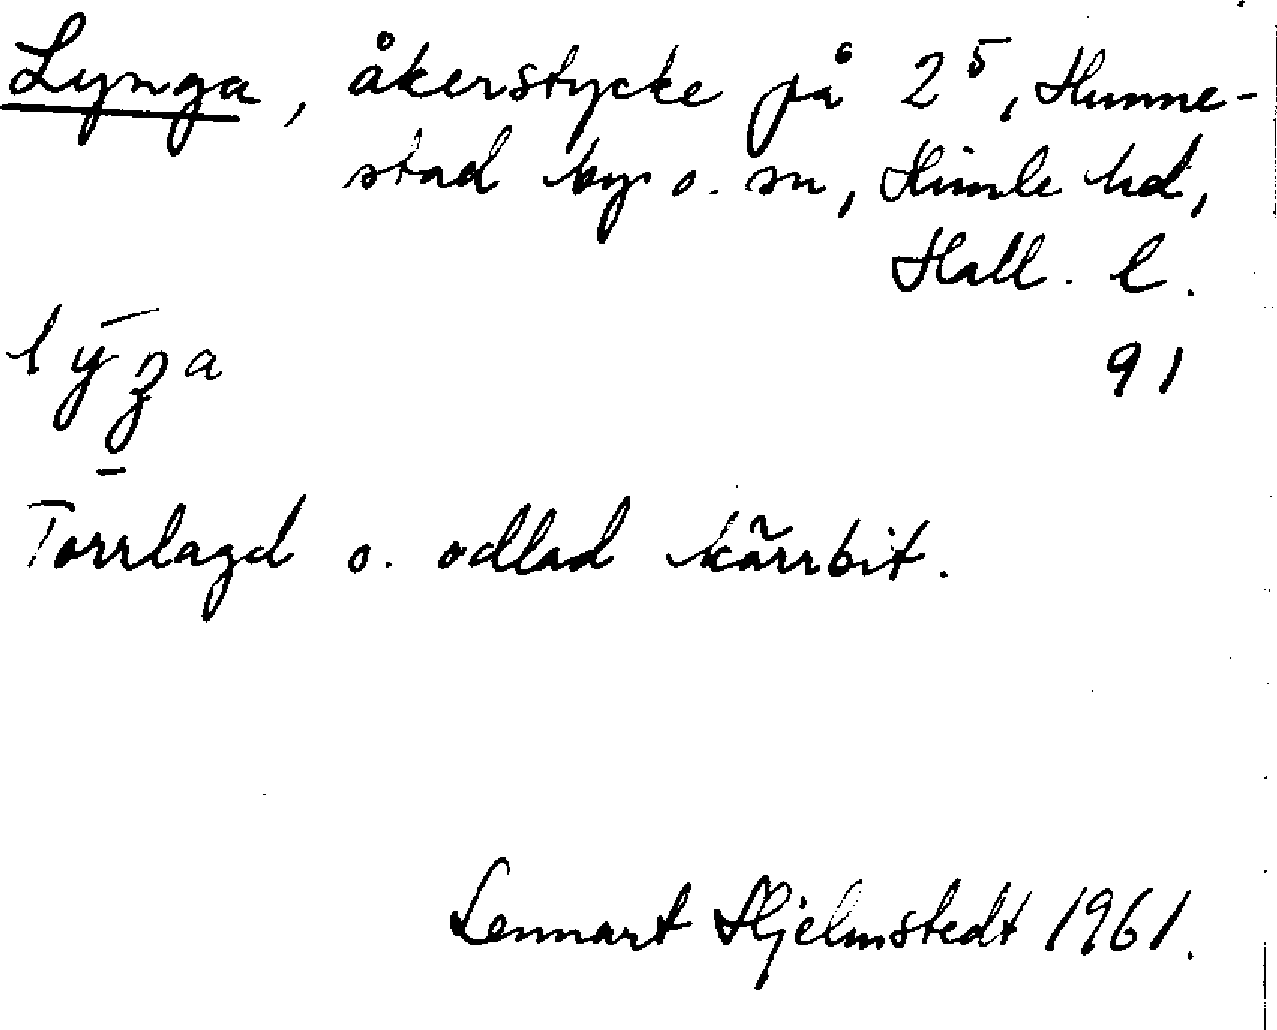 Lynga, åkerstycke på 2⁵, Hunne-
stad by o. sn, Himle hd,
Hall. l.
91
Torrlagd o. odlad kärrbit.
Lennart Hjelmstedt 1961.